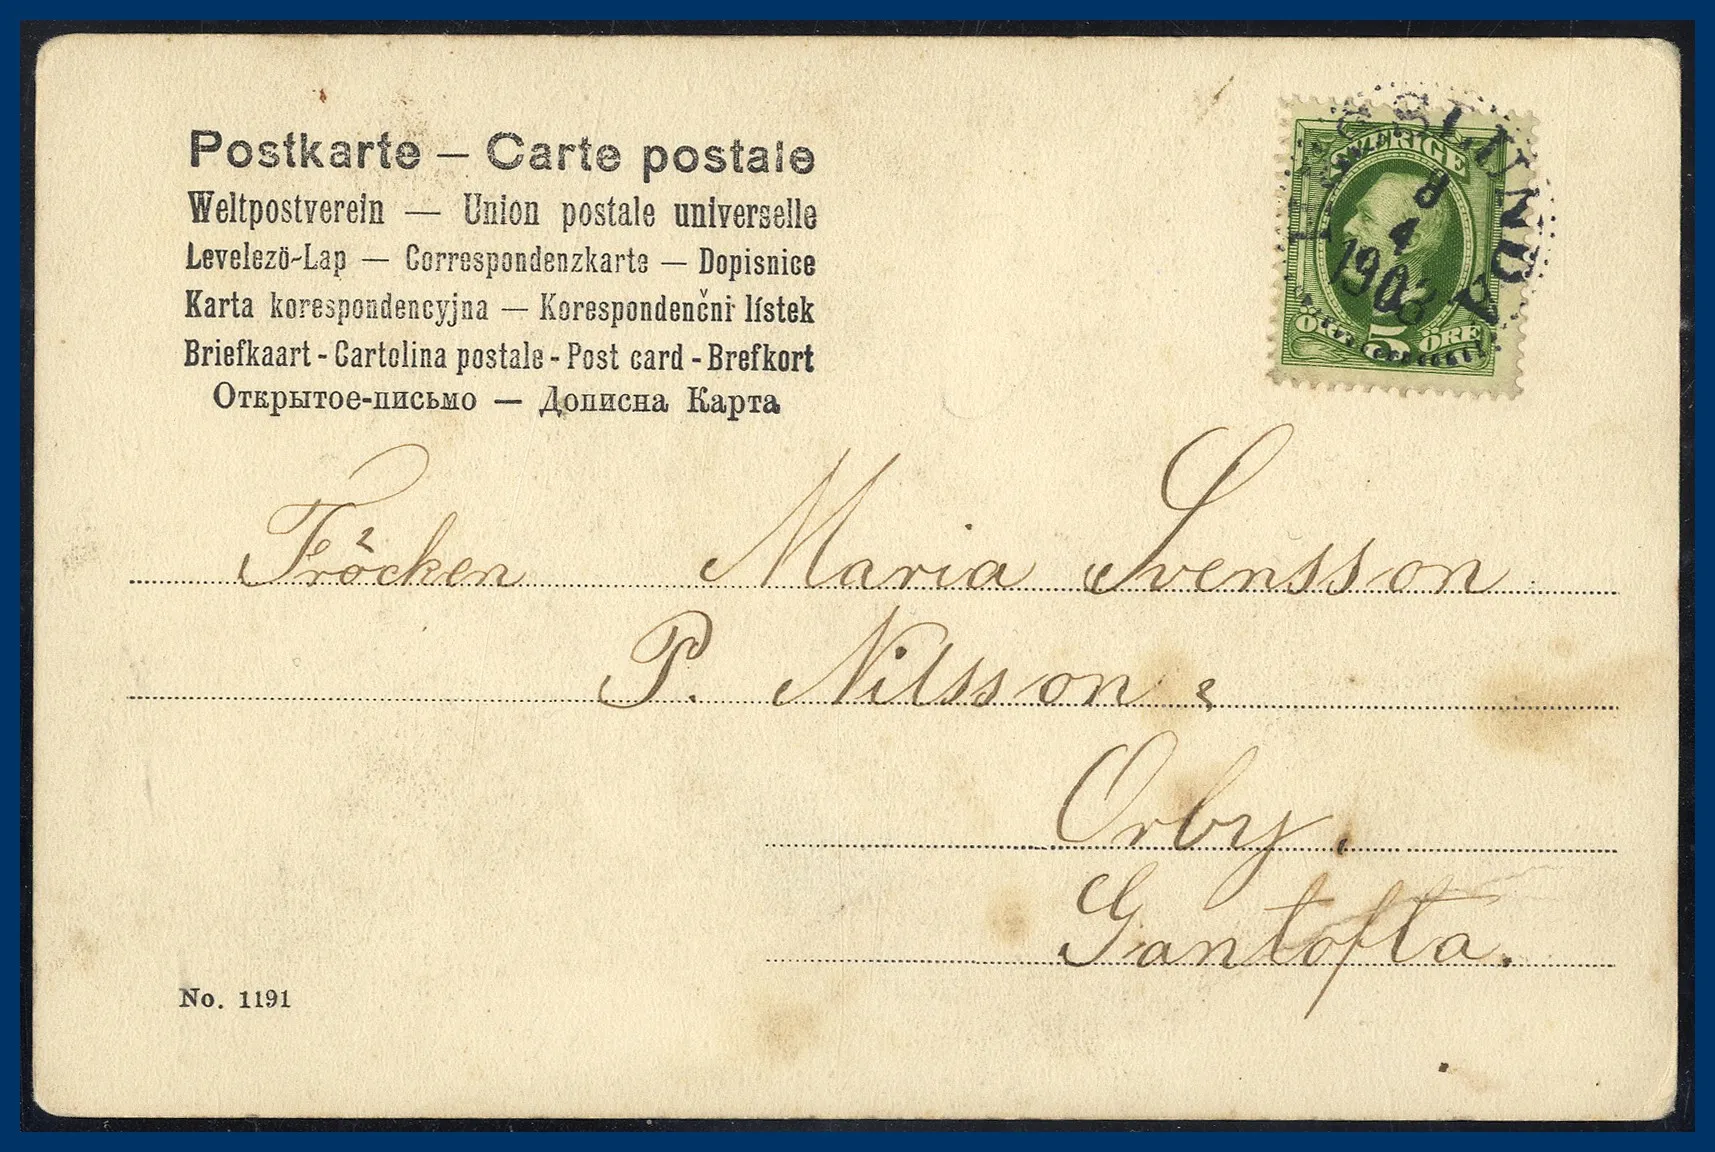 Postkarte – Carte postale
Weltpostverein — Union postale universelle
Levelező-Lap — Correspondenzkarte — Dopisnice
Karta korespondencyjna — Korespondenční lístek
Briefkaart - Cartolina postale - Post card - Brefkort
Открытое-письмо — Дописна Карта
SVERIGE
8
4
1903
5
ÖRE ÖRE
Fröcken Maria Svensson
P. Nilsson
Orby.
Gantofta.
No. 1191